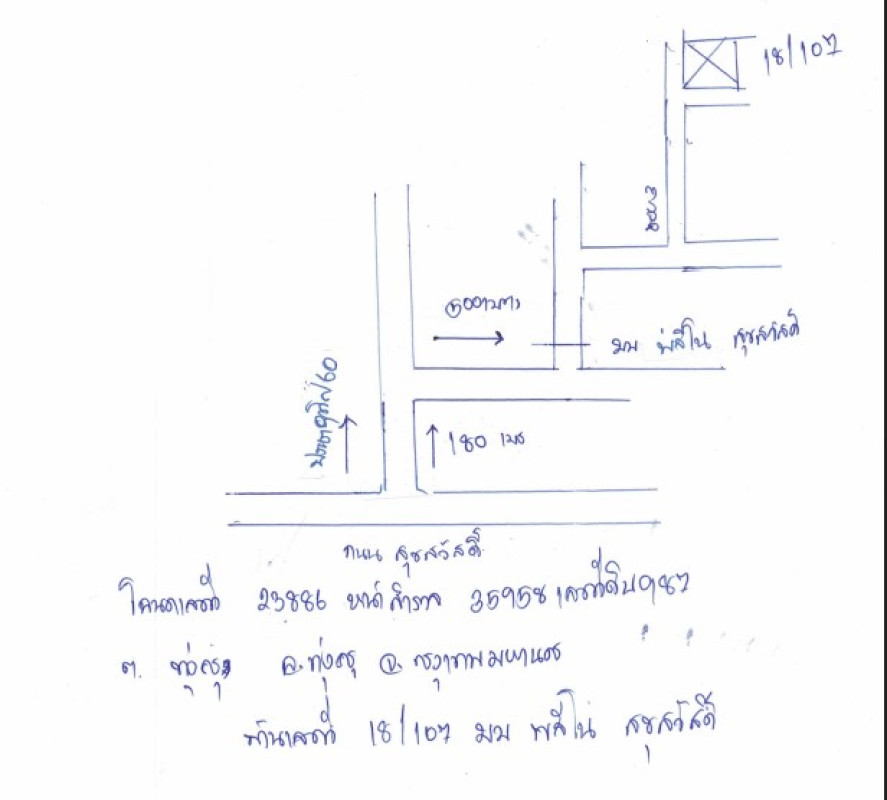 18/107
ซอย 3
500 เมตร
มบ พลีโน่ สุขสวัสดิ์
ประชาอุทิศ 60
180 เมตร
ถนน สุขสวัสดิ์
โฉนดเลขที่ 23886 หน้าสำรวจ 35958 เลขที่ดิน 987
ต. ทุ่งครุ อ. ทุ่งครุ จ. กรุงเทพมหานคร
บ้านเลขที่ 18/107 มบ พลีโน่ สุขสวัสดิ์